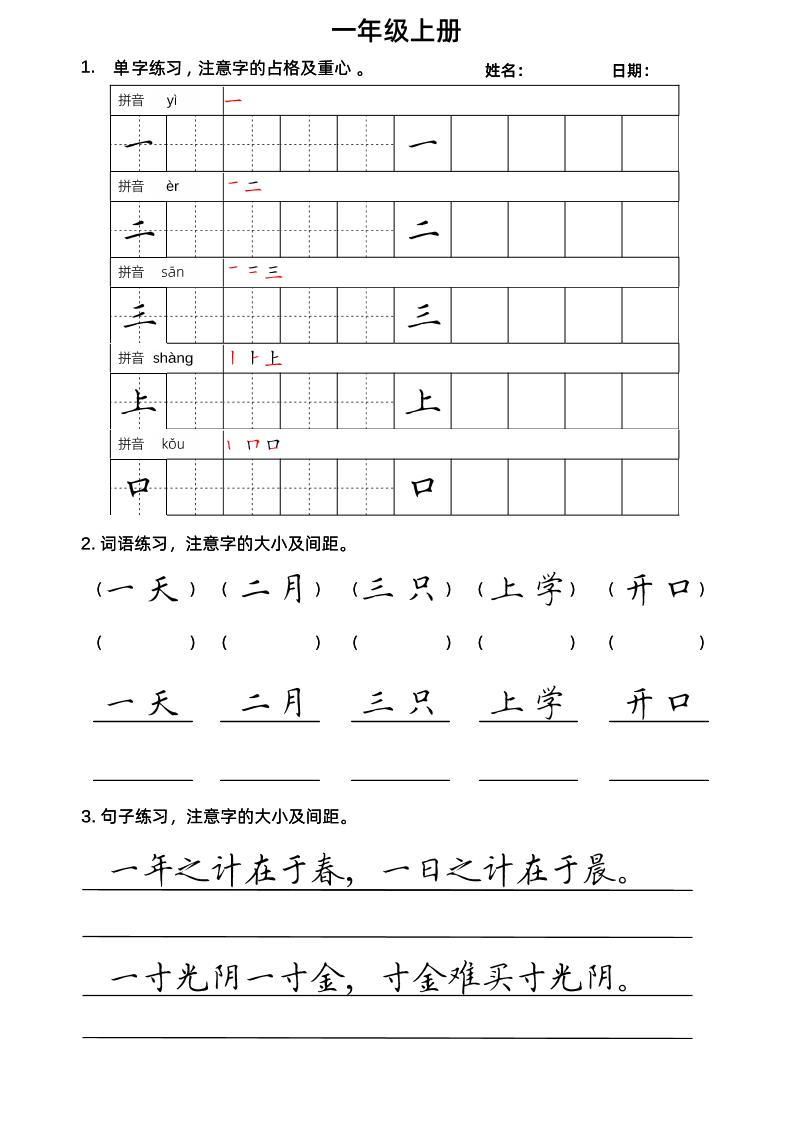 一年级上册
1. 单字练习，注意字的占格及重心。 姓名： 日期：
拼音 yì 一
一 一
拼音 èr 一 二
二 二
拼音 sān 一 二 三
三 三
拼音 shàng 丨 ⺊ 上
上 上
拼音 kǒu 丨 冂 口
口 口
2. 词语练习，注意字的大小及间距。
（一天）（二月）（三只）（上学）（开口）
（ ）（ ）（ ）（ ）（ ）
一天 二月 三只 上学 开口
3. 句子练习，注意字的大小及间距。
一年之计在于春，一日之计在于晨。
一寸光阴一寸金，寸金难买寸光阴。